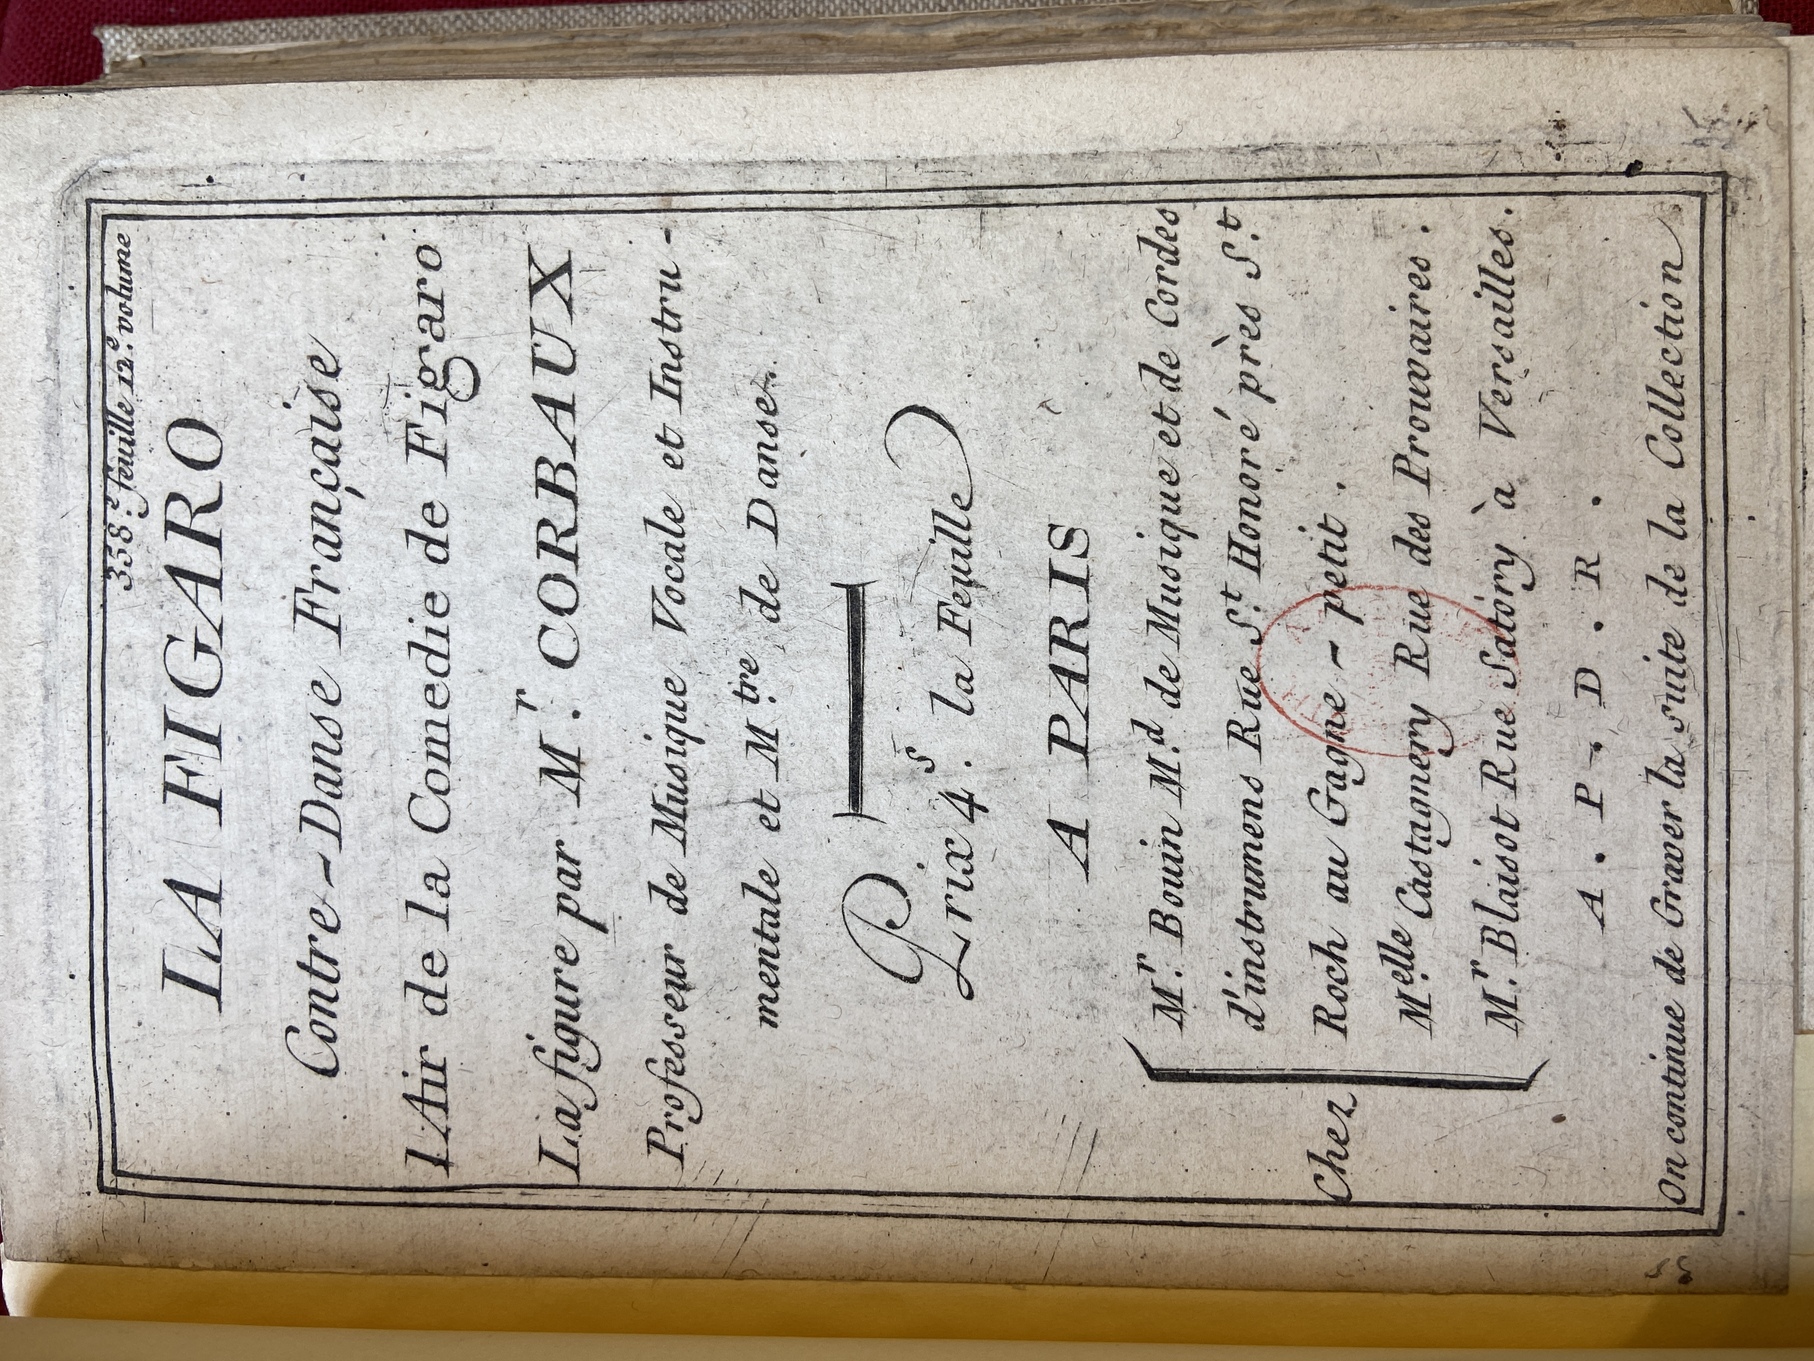 358.e feuille 12.e volume
LA FIGARO
Contre-Danse Française
L'Air de la Comedie de Figaro
La figure par M.r CORBAUX
Professeur de Musique Vocale et Instru-
mentale et M.tre de Danse.
Prix 4.s la Feuille
A PARIS
M.r Bouin M.d de Musique et de Cordes
d'instrumens Rue S.t Honoré près S.t
Chez Roch au Gagne-petit.
M.elle Castagnery Rue des Prouvaires.
M.r Blaisot Rue Satory à Versailles.
A. P. D. R.
On continue de Graver la suite de la Collection